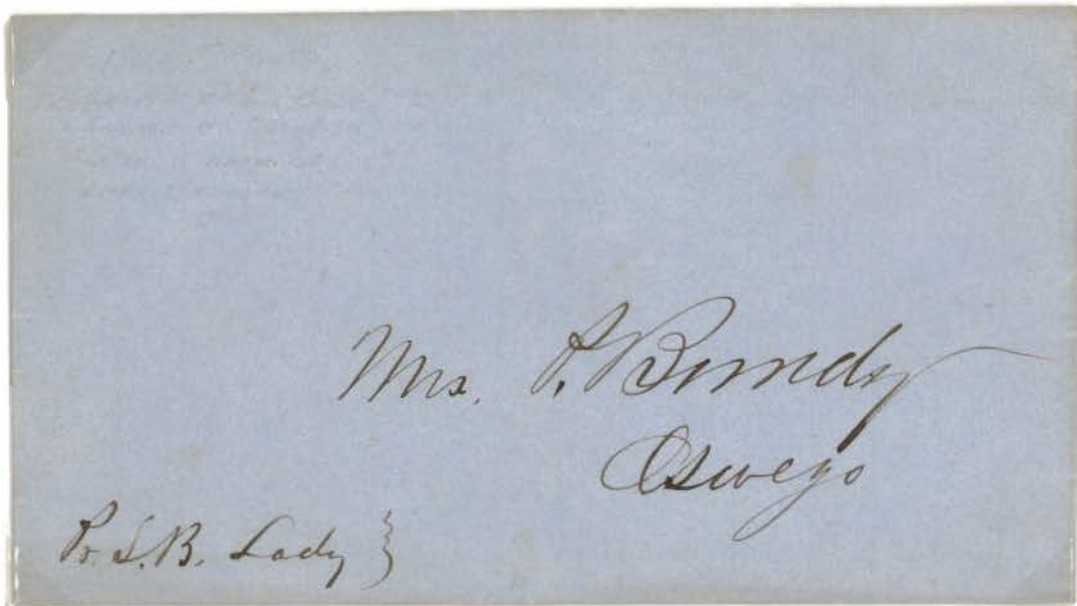 Mrs. S. Bundy
Oswego
Pr. S. B. Lady }